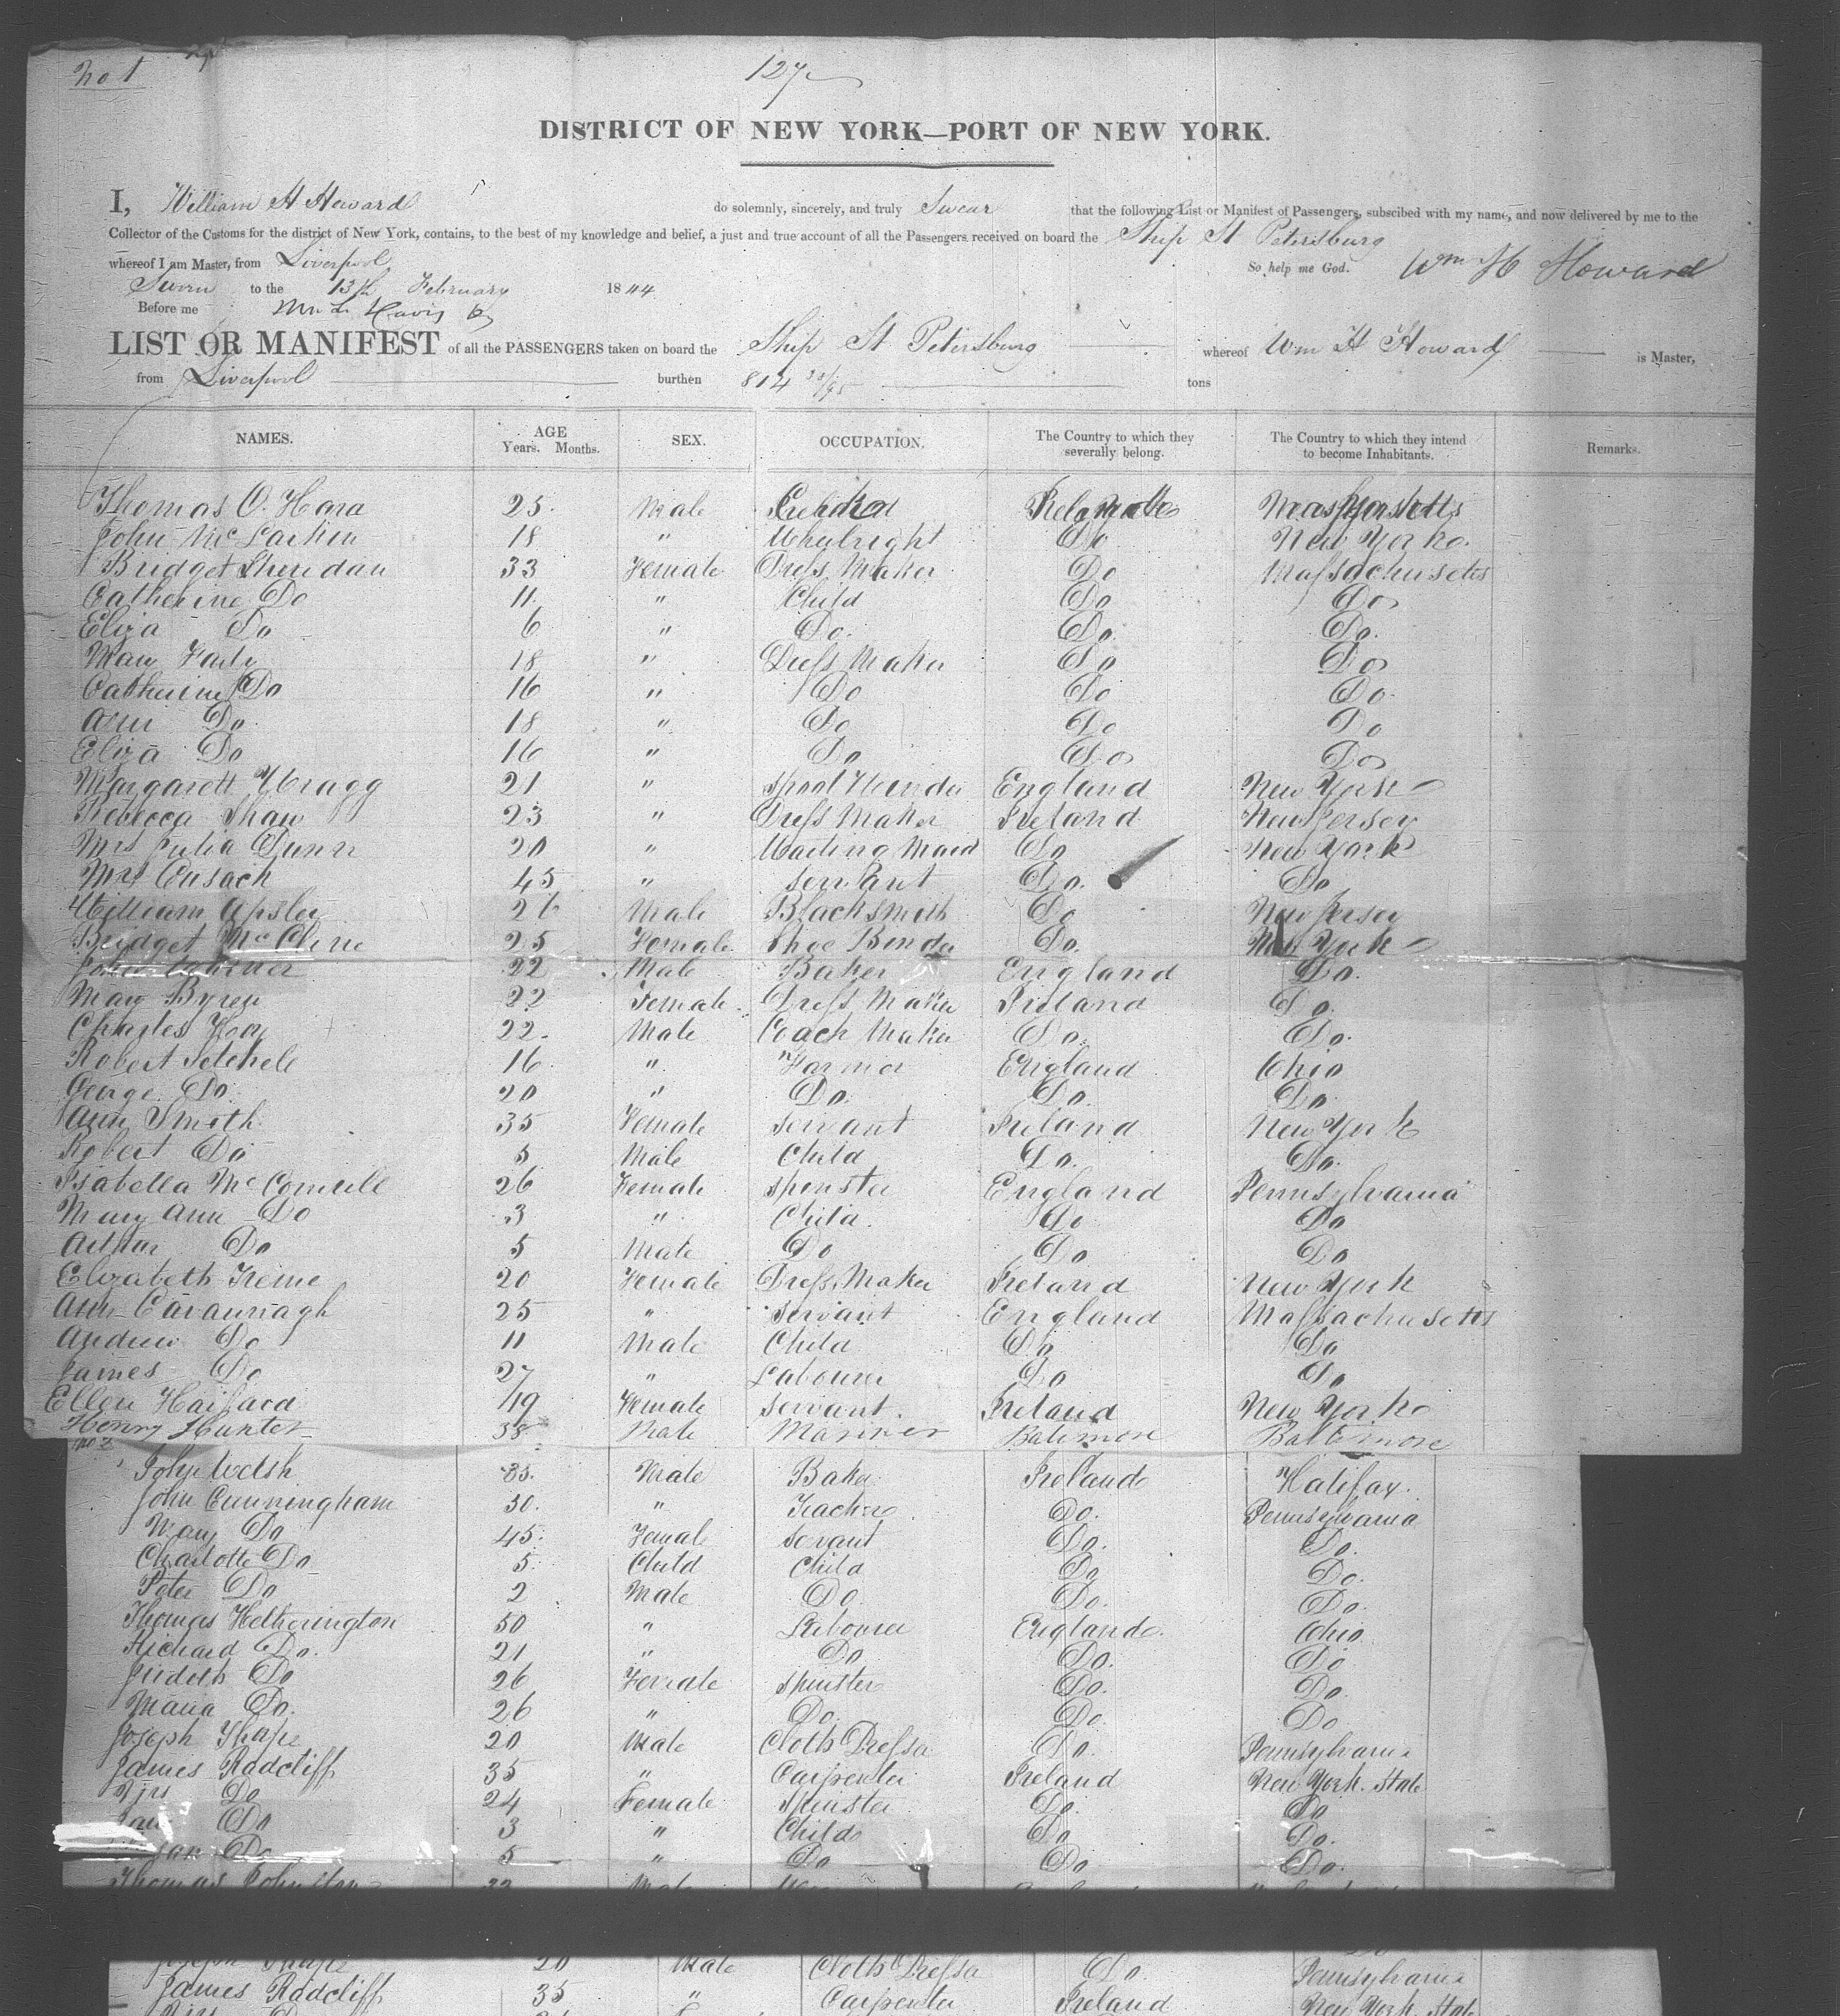 No 1
127
DISTRICT OF NEW YORK—PORT OF NEW YORK.
I, William H Howard do solemnly, sincerely, and truly Swear that the following List or Manifest of Passengers, subscibed with my name, and now delivered by me to the
Collector of the Customs for the district of New York, contains, to the best of my knowledge and belief, a just and true account of all the Passengers received on board the Ship St Petersburg
whereof I am Master, from Liverpool So help me God. Wm H Howard
Sworn to the 13th February 1844
Before me
LIST OR MANIFEST of all the PASSENGERS taken on board the Ship St Petersburg whereof Wm H Howard is Master,
from Liverpool burthen 814 /95 tons
NAMES. AGE Years. Months. SEX. OCCUPATION. The Country to which they severally belong. The Country to which they intend to become Inhabitants. Remarks.
Thomas O. Hara 25. Male
John McLarkin 18 " Whelright Do New York.
Bridget Sheridan 33 Female Dress Maker Do Massachusetts
Catherine Do 11. " Child Do Do
Eliza Do 6 " Do. Do. Do.
Mary 18 " Dress Maker Do Do
Catherine Do 16 " Do Do Do
Ann Do. 18 " Do Do Do
Eliza Do 16 " Do Do Do
Margarett Wragg 21 " England New York
Rebecca Shaw 23 " Dress Maker Ireland New Jersey
Mrs Julia Dunn 20 " Waiting Maid Do New York
Mrs Cusack 45 " Servant Do. Do
William Apsley 26 Male Blacksmith Do New Jersey
Bridget McCline 25 Female Shoe Binder Do. New York
22 Male Baker England Do.
Mary Byren 22 Female Dress Maker Ireland Do.
Charles Hoy 22. Male Coach Maker Do. Do.
Robert Setchell 16 " Farmer England Ohio
George Do. 20 " Do. Do. Do
Ann Smith 35 Female Servant Ireland New York
Robert Do 5 Male Child Do. Do.
Isabella McConnell 26 Female Spinster England Pennsylvania
Mary Ann Do 3 " Child Do Do
Arthur Do 5 Male Do Do Do
Elizabeth 20 Female Dress Maker Ireland New York
Ann Cavannagh 25 " Servant England Massachusetts
Andrew Do 11 Male Child Do Do
James Do 27 " Labourer Do Do
Ellen 19 Female Servant. Ireland New York
Henry Hunter 38 Male Mariner Batimore Baltimore
No 2
John Welsh 35. Male Baker Ireland Halifax.
John Cunningham 50. " Teacher Do. Pennsylvania
Mary Do 45. Female Servant Do. Do.
Charlotte Do 5 Child Child Do Do.
Peter Do 2 Male Do. Do. Do.
Thomas Hetherington 50 " Labourer England Ohio
Richard Do. 21 " Do Do. Do
Judith Do 26 Female Spinster Do. Do.
Maria Do. 26 " Do. Do. Do
Joseph Sharpe 20 Male Cloth Dresser Do. Pennsylvania
James Radcliff 35 " Carpenter Ireland New York State
Mrs Do 24 Female Spinster Do. Do
Jane Do 3 " Child Do Do.
Do 5 " Do Do Do.
Thomas Johnston
20 Male Cloth Dresser Do. Pennsylvania
James Radcliff 35 " Carpenter Ireland New York State